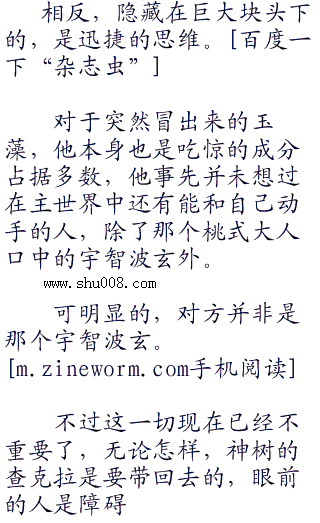 相反，隐藏在巨大块头下
的，是迅捷的思维。[百度一
下“杂志虫”]
对于突然冒出来的玉
藻，他本身也是吃惊的成分
占据多数，他事先并未想过
在主世界中还有能和自己动
手的人，除了那个桃式大人
口中的宇智波玄外。
www.shu008.com
可明显的，对方并非是
那个宇智波玄。
[m.zineworm.com手机阅读]
不过这一切现在已经不
重要了，无论怎样，神树的
查克拉是要带回去的，眼前
的人是障碍